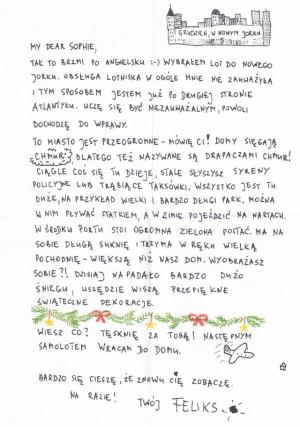 GRUDZIEŃ, W NOWYM JORKU
MY DEAR SOPHIE,
TAK TO BRZMI PO ANGIELSKU :-) WYBRAŁEM LOT DO NOWEGO
JORKU. OBSŁUGA LOTNISKA W OGÓLE MNIE NIE ZAUWAŻYŁA
I TYM SPOSOBEM JESTEM JUŻ PO DRUGIEJ STRONIE
ATLANTYKU. UCZĘ SIĘ BYĆ NIEZAUWAŻALNYM, POWOLI
DOCHODZĘ DO WPRAWY.
TO MIASTO JEST PRZEOGROMNE - MÓWIĘ CI! DOMY SIĘGAJĄ
CHMUR, DLATEGO TEŻ NAZYWANE SĄ DRAPACZAMI CHMUR!
CIĄGLE COŚ SIĘ TU DZIEJE, STALE SŁYSZYSZ SYRENY
POLICYJNE LUB TRĄBIĄCE TAKSÓWKI. WSZYSTKO JEST TU
DUŻE, NA PRZYKŁAD WIELKI I BARDZO DŁUGI PARK. MOŻNA
W NIM PŁYWAĆ STATKIEM, A W ZIMIE POJEŹDZIĆ NA NARTACH.
W ŚRODKU PORTU STOI OGROMNA ZIELONA POSTAĆ. MA NA
SOBIE DŁUGĄ SUKNIĘ I TRZYMA W RĘKU WIELKĄ
POCHODNIĘ - WIĘKSZĄ NIŻ NASZ DOM. WYOBRAŻASZ
SOBIE?! DZISIAJ NAPADAŁO BARDZO DUŻO
ŚNIEGU, WSZĘDZIE WISZĄ PRZEPIĘKNE
ŚWIĄTECZNE DEKORACJE.
WIESZ CO? TĘSKNIĘ ZA TOBĄ! NASTĘPNYM
SAMOLOTEM WRACAM DO DOMU.
BARDZO SIĘ CIESZĘ, ŻE ZNOWU CIĘ ZOBACZĘ.
NA RAZIE! TWÓJ FELIKS